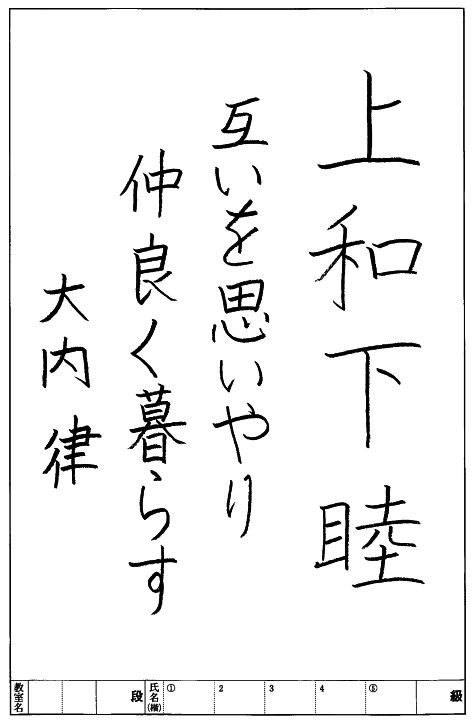 上和下睦
互いを思いやり
仲良く暮らす
大内律
級
⑤
4
3
2
①
氏名(楷)
段
教室名